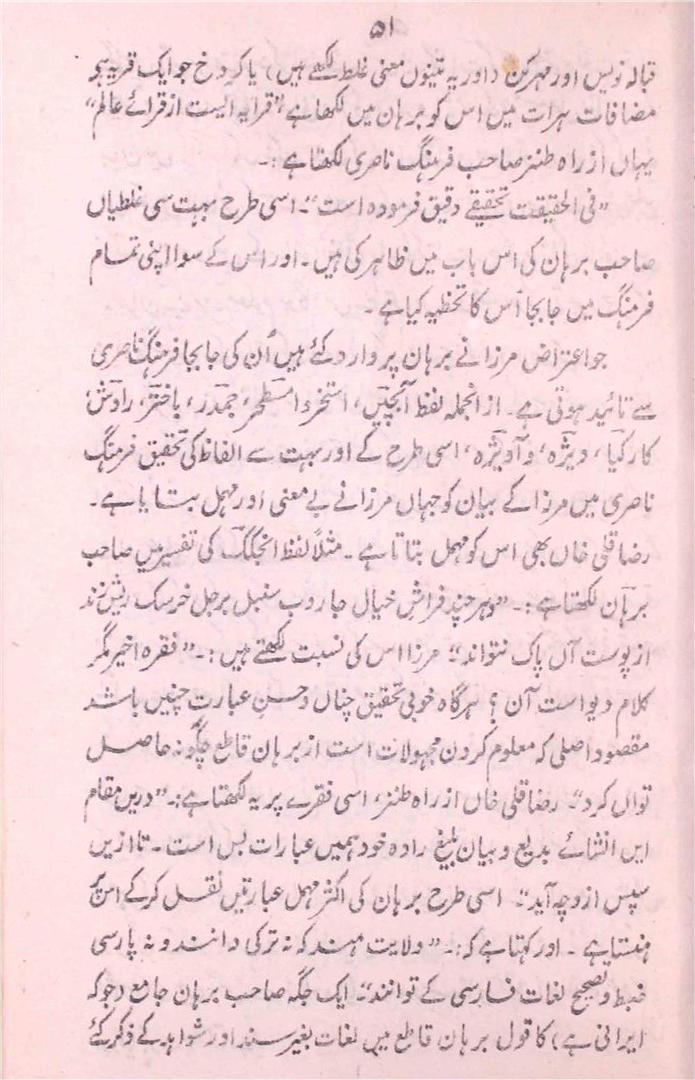 ۵۱
قبالہ نویس اور مہرکن (اور یہ تینوں معنی غلط لکھے ہیں) یا کرخ جو ایک قریہ ہے
مضافات ہرات میں اس کو برہان میں لکھا ہے "قرایہ ایست از قرائے عالم"
یہاں از راہ طنز صاحب فرہنگ ناصری لکھتا ہے :۔
"فی الحقیقت تحقیقے دقیق فرمودہ است"۔ اسی طرح بہت سی غلطیاں
صاحب برہان کی اس باب میں ظاہر کی ہیں۔ اور اس کے سوا اپنی تمام
فرہنگ میں جا بجا اُس کا تخطیہ کیا ہے۔
جو اعتراض مرزا نے برہان پر وارد کئے ہیں اُن کی جا بجا فرہنگ ناصری
سے تائید ہوتی ہے۔ ازانجملہ لفظ آبچیں، استخر و اصطخر، جمدر، باختر، راوش،
کارکیا، ویژہ، و آویژہ، اسی طرح کے اور بہت سے الفاظ کی تحقیق فرہنگ
ناصری میں مرزا کے بیان کو جہاں مرزا نے بے معنی اور مہمل بتایا ہے۔
رضا قلی خاں بھی اس کو مہمل بتاتا ہے۔ مثلاً لفظ انجکک کی تفسیر میں صاحب
برہان لکھتا ہے :۔ "وہر چند فراش خیال جاروب سنبل بر جل خرسک ریش زند
از پوست آں پاک نتواند"۔ مرزا اس کی نسبت لکھتے ہیں :۔ "فقرہ اخیر مگر
کلام دیو است آن؟ ہرگاہ خوبی تحقیق چناں و حسن عبارت چنیں باشد
مقصود اصلی کہ معلوم کردن مجہولات است از برہان قاطع چگونہ حاصل
تواں کرد"۔ رضا قلی خاں از راہ طنز، اسی فقرے پر یہ لکھتا ہے :۔ "دریں مقام
ایں انشائے بدیع و بیان بلیغ رادہ خود ہمیں عبارات بس است۔ تا ازیں
سپس ازو چہ آید"۔ اسی طرح برہان کی اکثر مہمل عبارتیں نقل کر کے اس پر
ہنستا ہے۔ اور کہتا ہے کہ :۔ "ولایت ہند کہ نہ ترکی دانند و نہ پارسی
ضبط و تصحیح لغات فارسی کے توانند"۔ ایک جگہ صاحب برہان جامع (جو کہ
ایرانی ہے) کا قول برہان قاطع میں لغات بغیر سند اور شواہد کے ذکر کئے